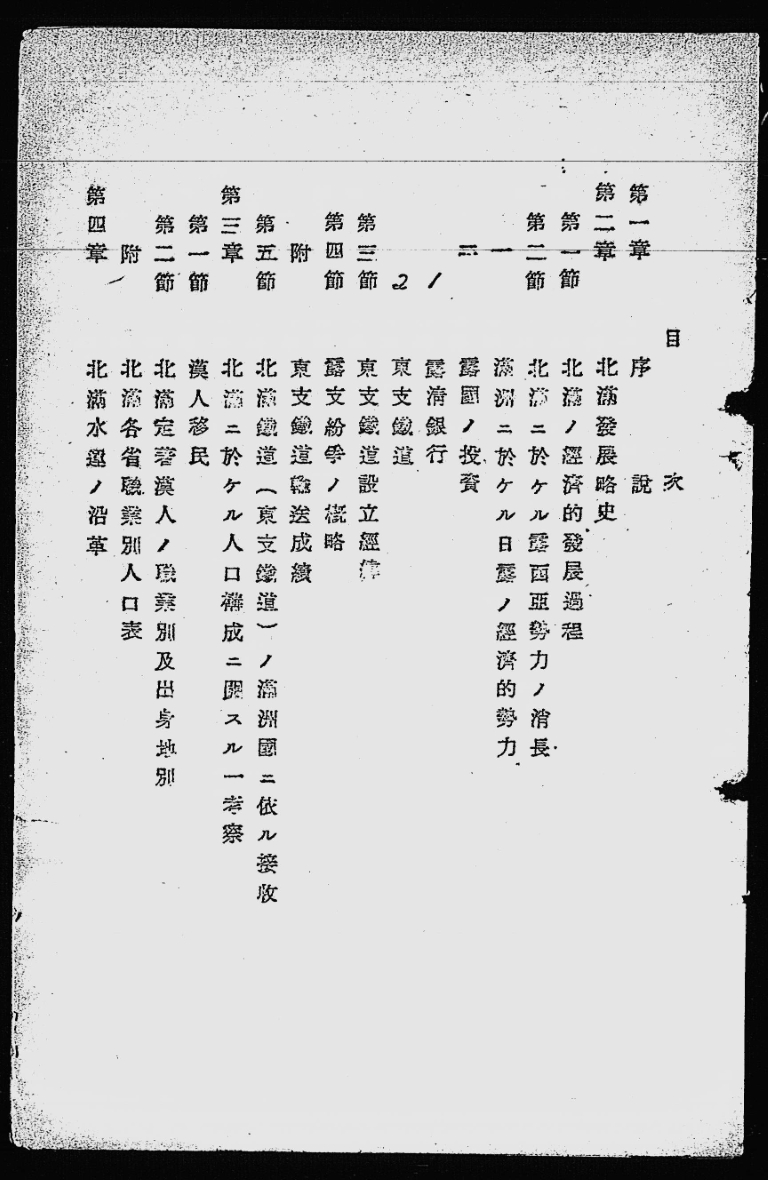 目次
第一章 序說
第二章 北滿發展略史
第一節 北滿ノ經濟的發展過程
第二節 北滿ニ於ケル露西亞勢力ノ消長
一 滿洲ニ於ケル日露ノ經濟的勢力
二 露國ノ投資
1 露淸銀行
2 東支鐵道
第三節 東支鐵道設立經緯
第四節 露支紛爭ノ槪略
附 東支鐵道輸送成績
第五節 北滿鐵道(東支鐵道)ノ滿洲國ニ依ル接收
第三章 北滿ニ於ケル人口構成ニ關スル一考察
第一節 漢人移民
第二節 北滿定著漢人ノ職業別及出身地別
附 北滿各省職業別人口表
第四章 北滿水運ノ沿革